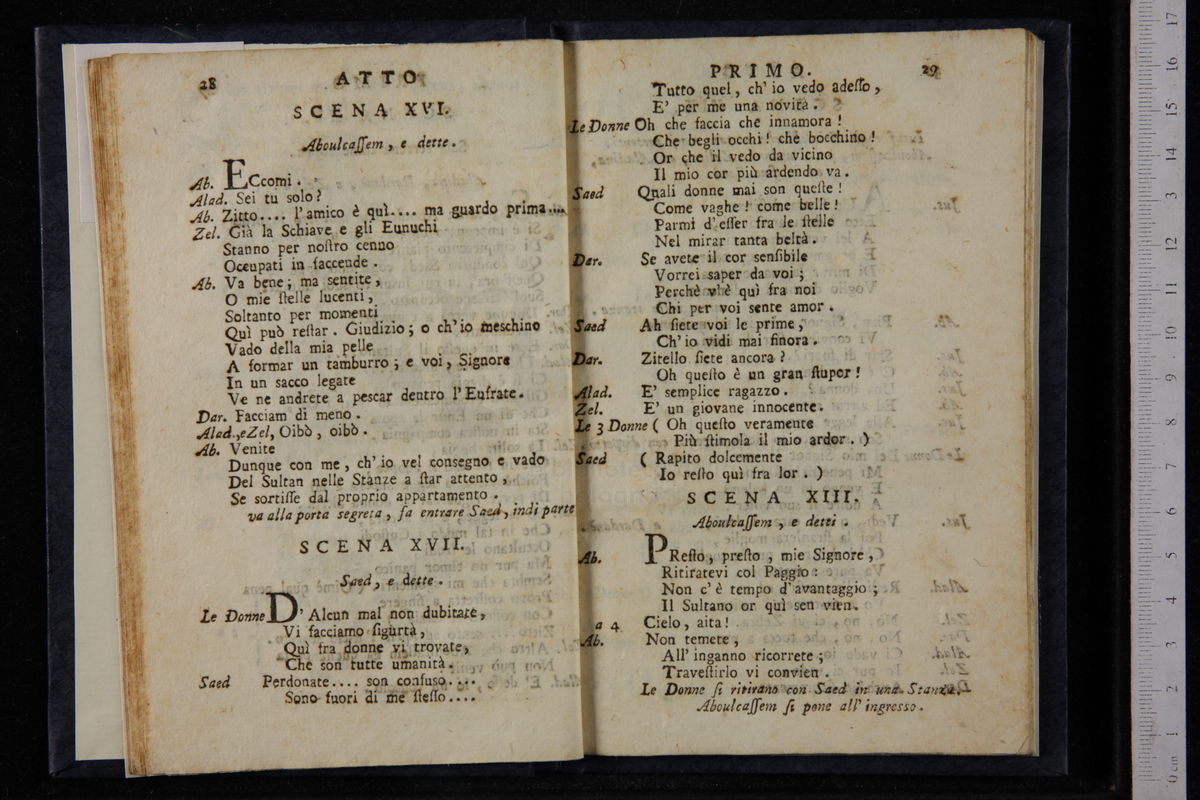 28
ATTO
SCENA XVI.
Aboulcaſſem, e dette.
Ab. ECcomi.
Alad. Sei tu solo?
Ab. Zitto.... l'amico è quì.... ma guardo prima....
Zel. Già la Schiave e gli Eunuchi
Stanno per noſtro cenno
Occupati in faccende.
Ab. Va bene; ma sentite,
O mie ſtelle lucenti,
Soltanto per momenti
Quì può reſtar. Giudizio; o ch'io meschino
Vado della mia pelle
A formar un tamburro; e voi, Signore
In un sacco legate
Ve ne andrete a pescar dentro l'Eufrate.
Dar. Facciam di meno.
Alad., e Zel, Oibò, oibò.
Ab. Venite
Dunque con me, ch'io vel consegno e vado
Del Sultan nelle Stanze a ſtar attento,
Se sortiſſe dal proprio appartamento.
va alla porta segreta, fa entrare Saed, indi parte
SCENA XVII.
Saed, e dette.
Le Donne D'Alcun mal non dubitate,
Vi facciamo ſigurtà,
Quì fra donne vi trovate,
Che son tutte umanità.
Saed Perdonate.... son confuso....
Sono fuori di me ſteſſo....
PRIMO.
29
Tutto quel, ch'io vedo adeſſo,
E' per me una novità.
Le Donne Oh che faccia che innamora!
Che begli occhi! chè bocchino!
Or che il vedo da vicino
Il mio cor più ardendo va.
Saed Quali donne mai son queſte!
Come vaghe! come belle!
Parmi d'eſſer fra le ſtelle
Nel mirar tanta beltà.
Dar. Se avete il cor senſibile
Vorrei saper da voi;
Perchè v'è quì fra noi
Chi per voi sente amor.
Saed Ah ſiete voi le prime,
Ch'io vidi mai finora.
Dar. Zitello ſiete ancora?
Oh queſto è un gran ſtupor!
Alad. E' semplice ragazzo.
Zel. E' un giovane innocente.
Le 3 Donne ( Oh queſto veramente
Più ſtimola il mio ardor. )
Saed ( Rapito dolcemente
Io reſto quì fra lor. )
SCENA XIII.
Aboulcaſſem, e detti.
Ab. PReſto, preſto, mie Signore,
Ritiratevi col Paggio:
Non c'è tempo d'avantaggio;
Il Sultano or quì sen vien.
a 4 Cielo, aita!
Ab. Non temete,
All'inganno ricorrete;
Traveſtirlo vi convien.
Le Donne ſi ritirano con Saed in una Stanza,
Aboulcaſſem ſi pone all'ingresso.
0 cm 1 2 3 4 5 6 7 8 9 10 11 12 13 14 15 16 17